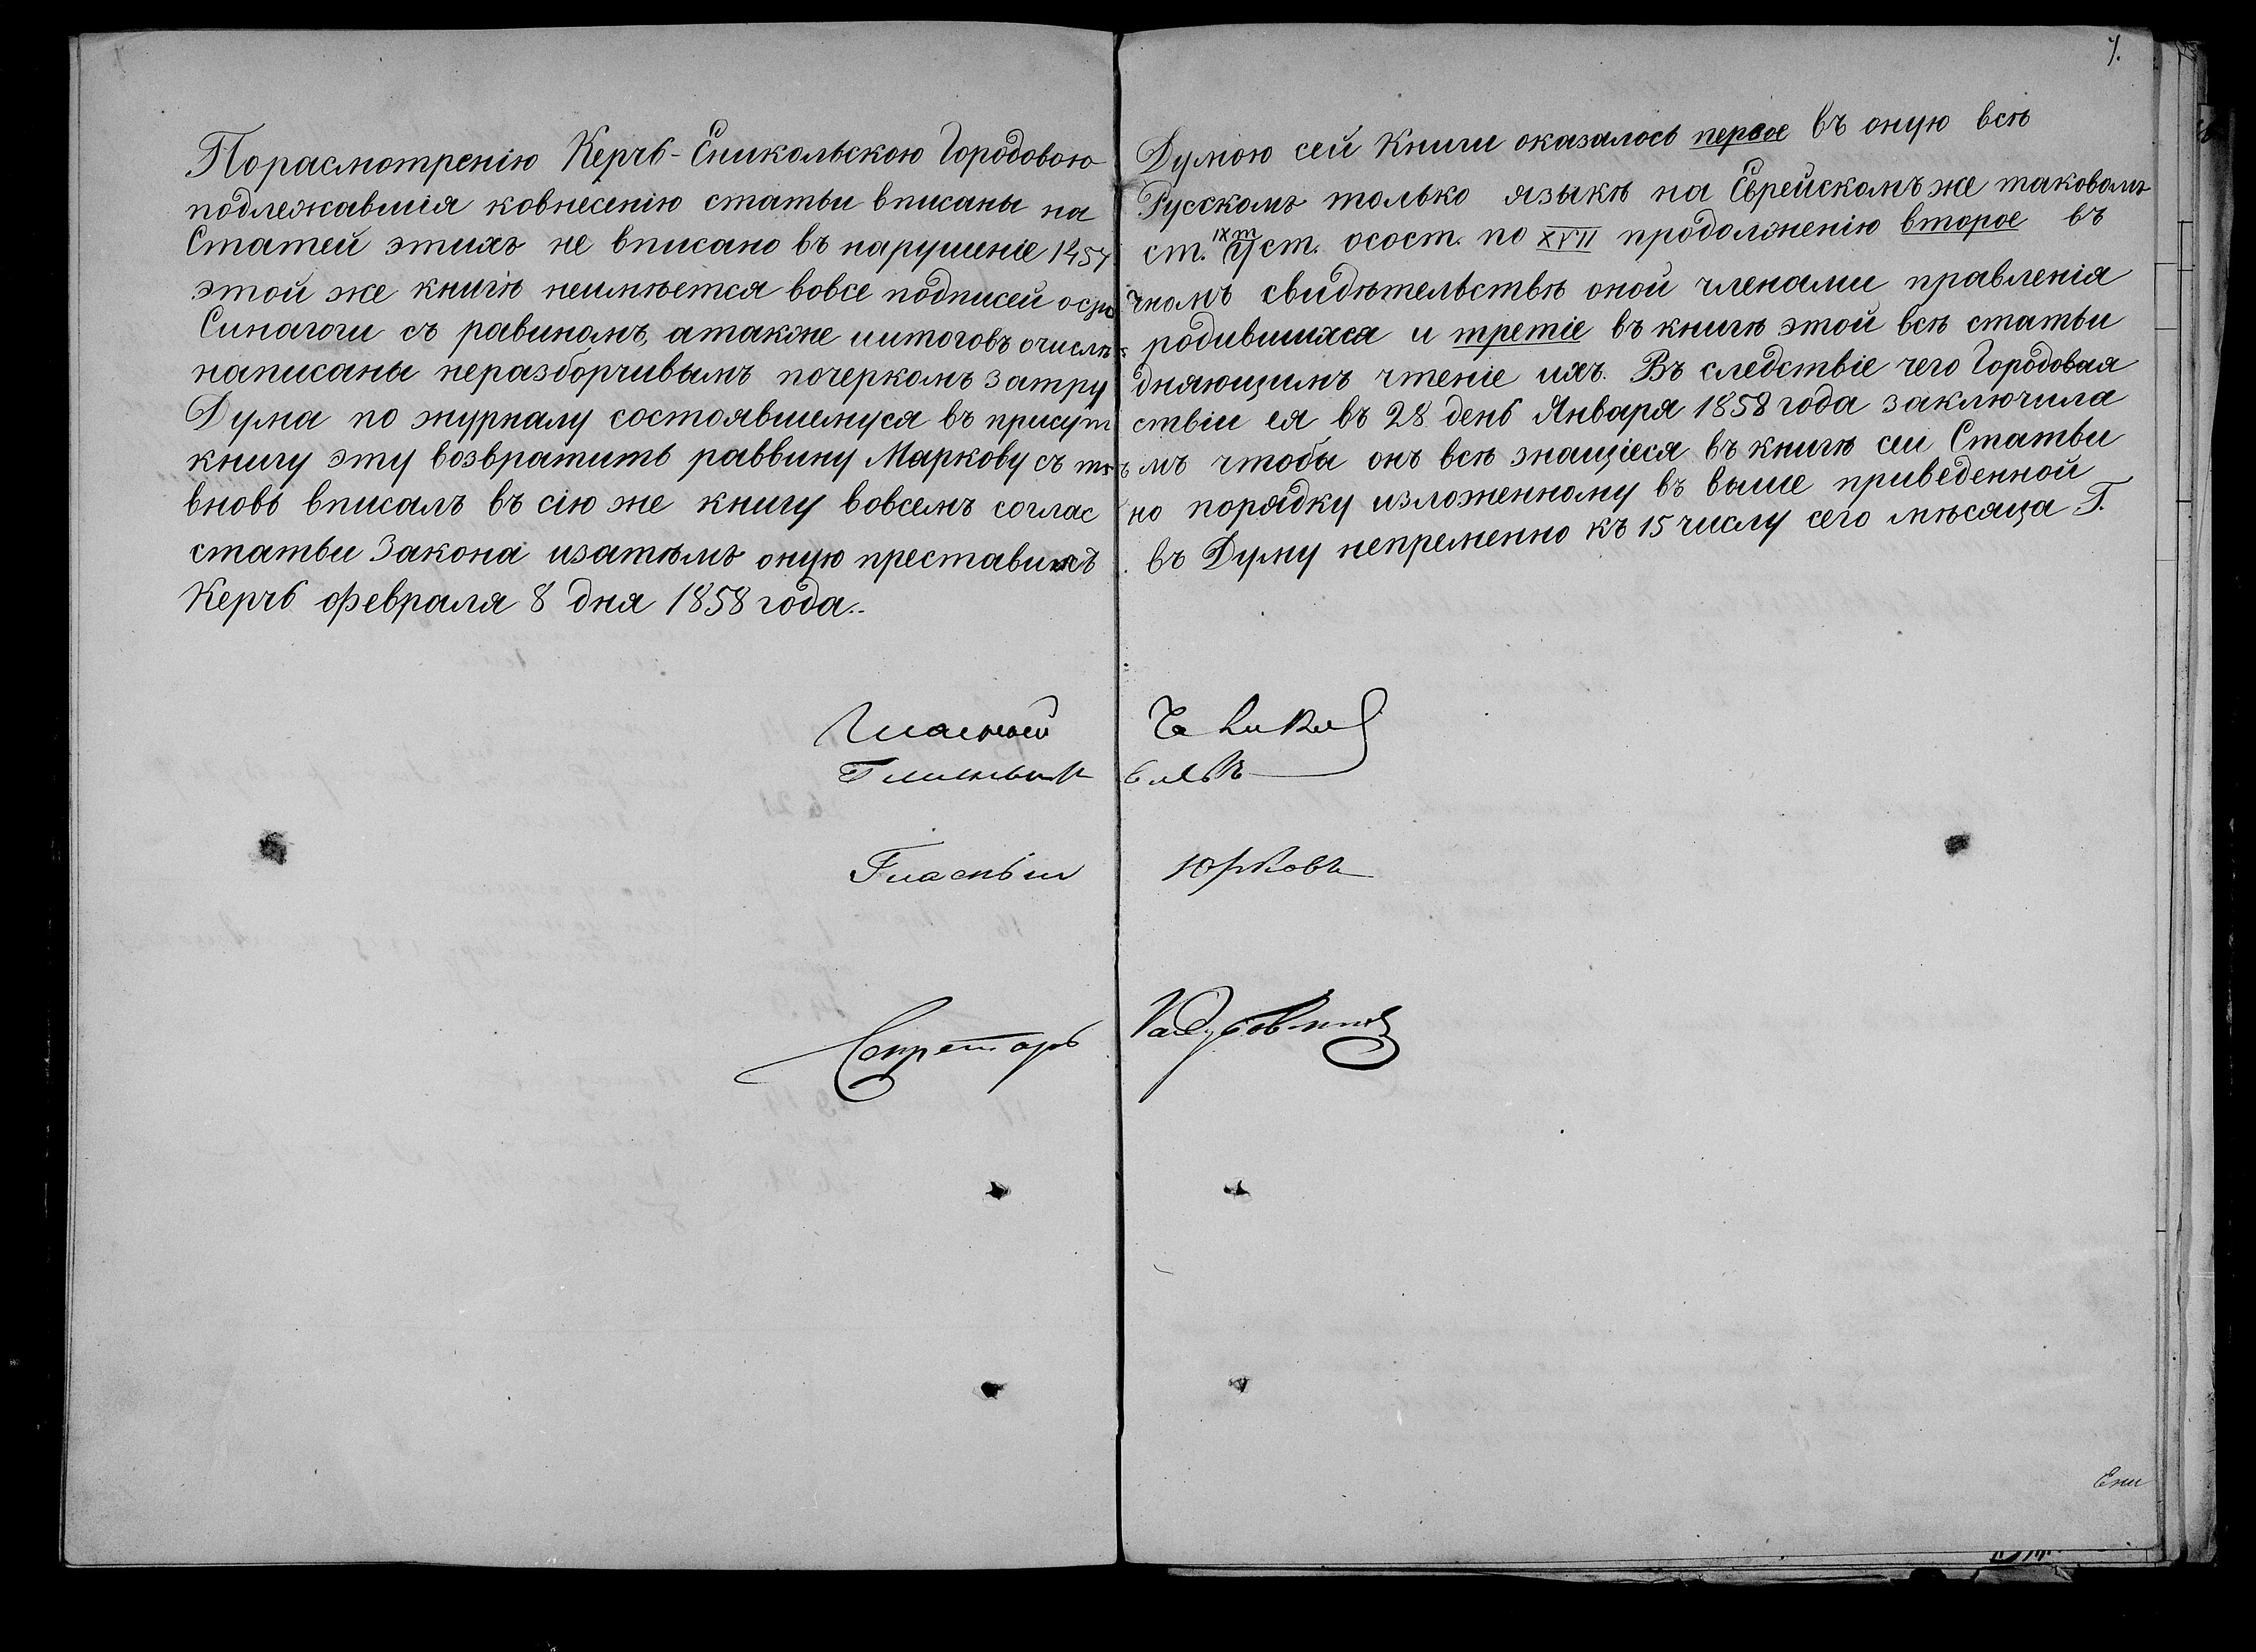 7.
Порасмотренію Керчь-Еникольскою Городовою Думою сей Книги оказалось первое въ оную всѣ
подлежавшія ковнесенію статьи вписаны на Русскомъ только языкѣ на Еврейскомъ же таковомъ
Статей этихъ не вписано въ нарушеніе 1457 ст. IX т уст. осост. по XVII продолженію второе въ
этой же книгѣ неимѣется вовсе подписей осрочномъ свидѣтельствѣ оной членами правленія
Синагоги съ равиномъ, атакже иитоговъ очислѣ родившихся и третіе въ книгѣ этой всѣ статьи
написаны неразборчивымъ почеркомъ затрудняющимъ чтеніе ихъ. Въ следствіе чего Городовая
Дума по журналу состоявшемуся въ присутствіи ея въ 28 день Января 1858 года заключила
книгу эту возвратить раввину Маркову съ тѣмъ чтобы онъ всѣ значіеся въ книгѣ сеи Статьи
вновь вписалъ въ сію же книгу вовсемъ согласно порядку изложенному въ выше приведенной
статьи Закона изатѣмъ оную преставилъ въ Думу непременно къ 15 числу сего мѣсяца Г.
Керчь февраля 8 дня 1858 года.
Гласный
Гласный Юрковъ
Секретарь
Ени